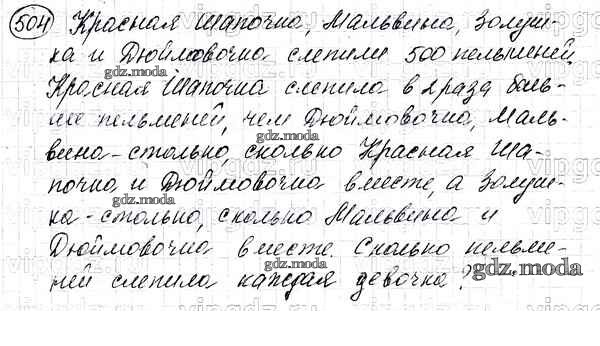 504 Красная Шапочка, Мальвина, Золуш-
ка и Дюймовочка слепили 500 пельменей.
gdz.moda
Красная Шапочка слепила в 2 раза боль-
gdz.moda
ше пельменей, чем Дюймовочка, Маль-
gdz.moda
вина - столько, сколько Красная Ша-
почка и Дюймовочка вместе, а Золуш-
gdz.moda
ка - столько, сколько Мальвина и
Дюймовочка вместе. Сколько пельме-
ней слепила каждая девочка?
gdz.moda